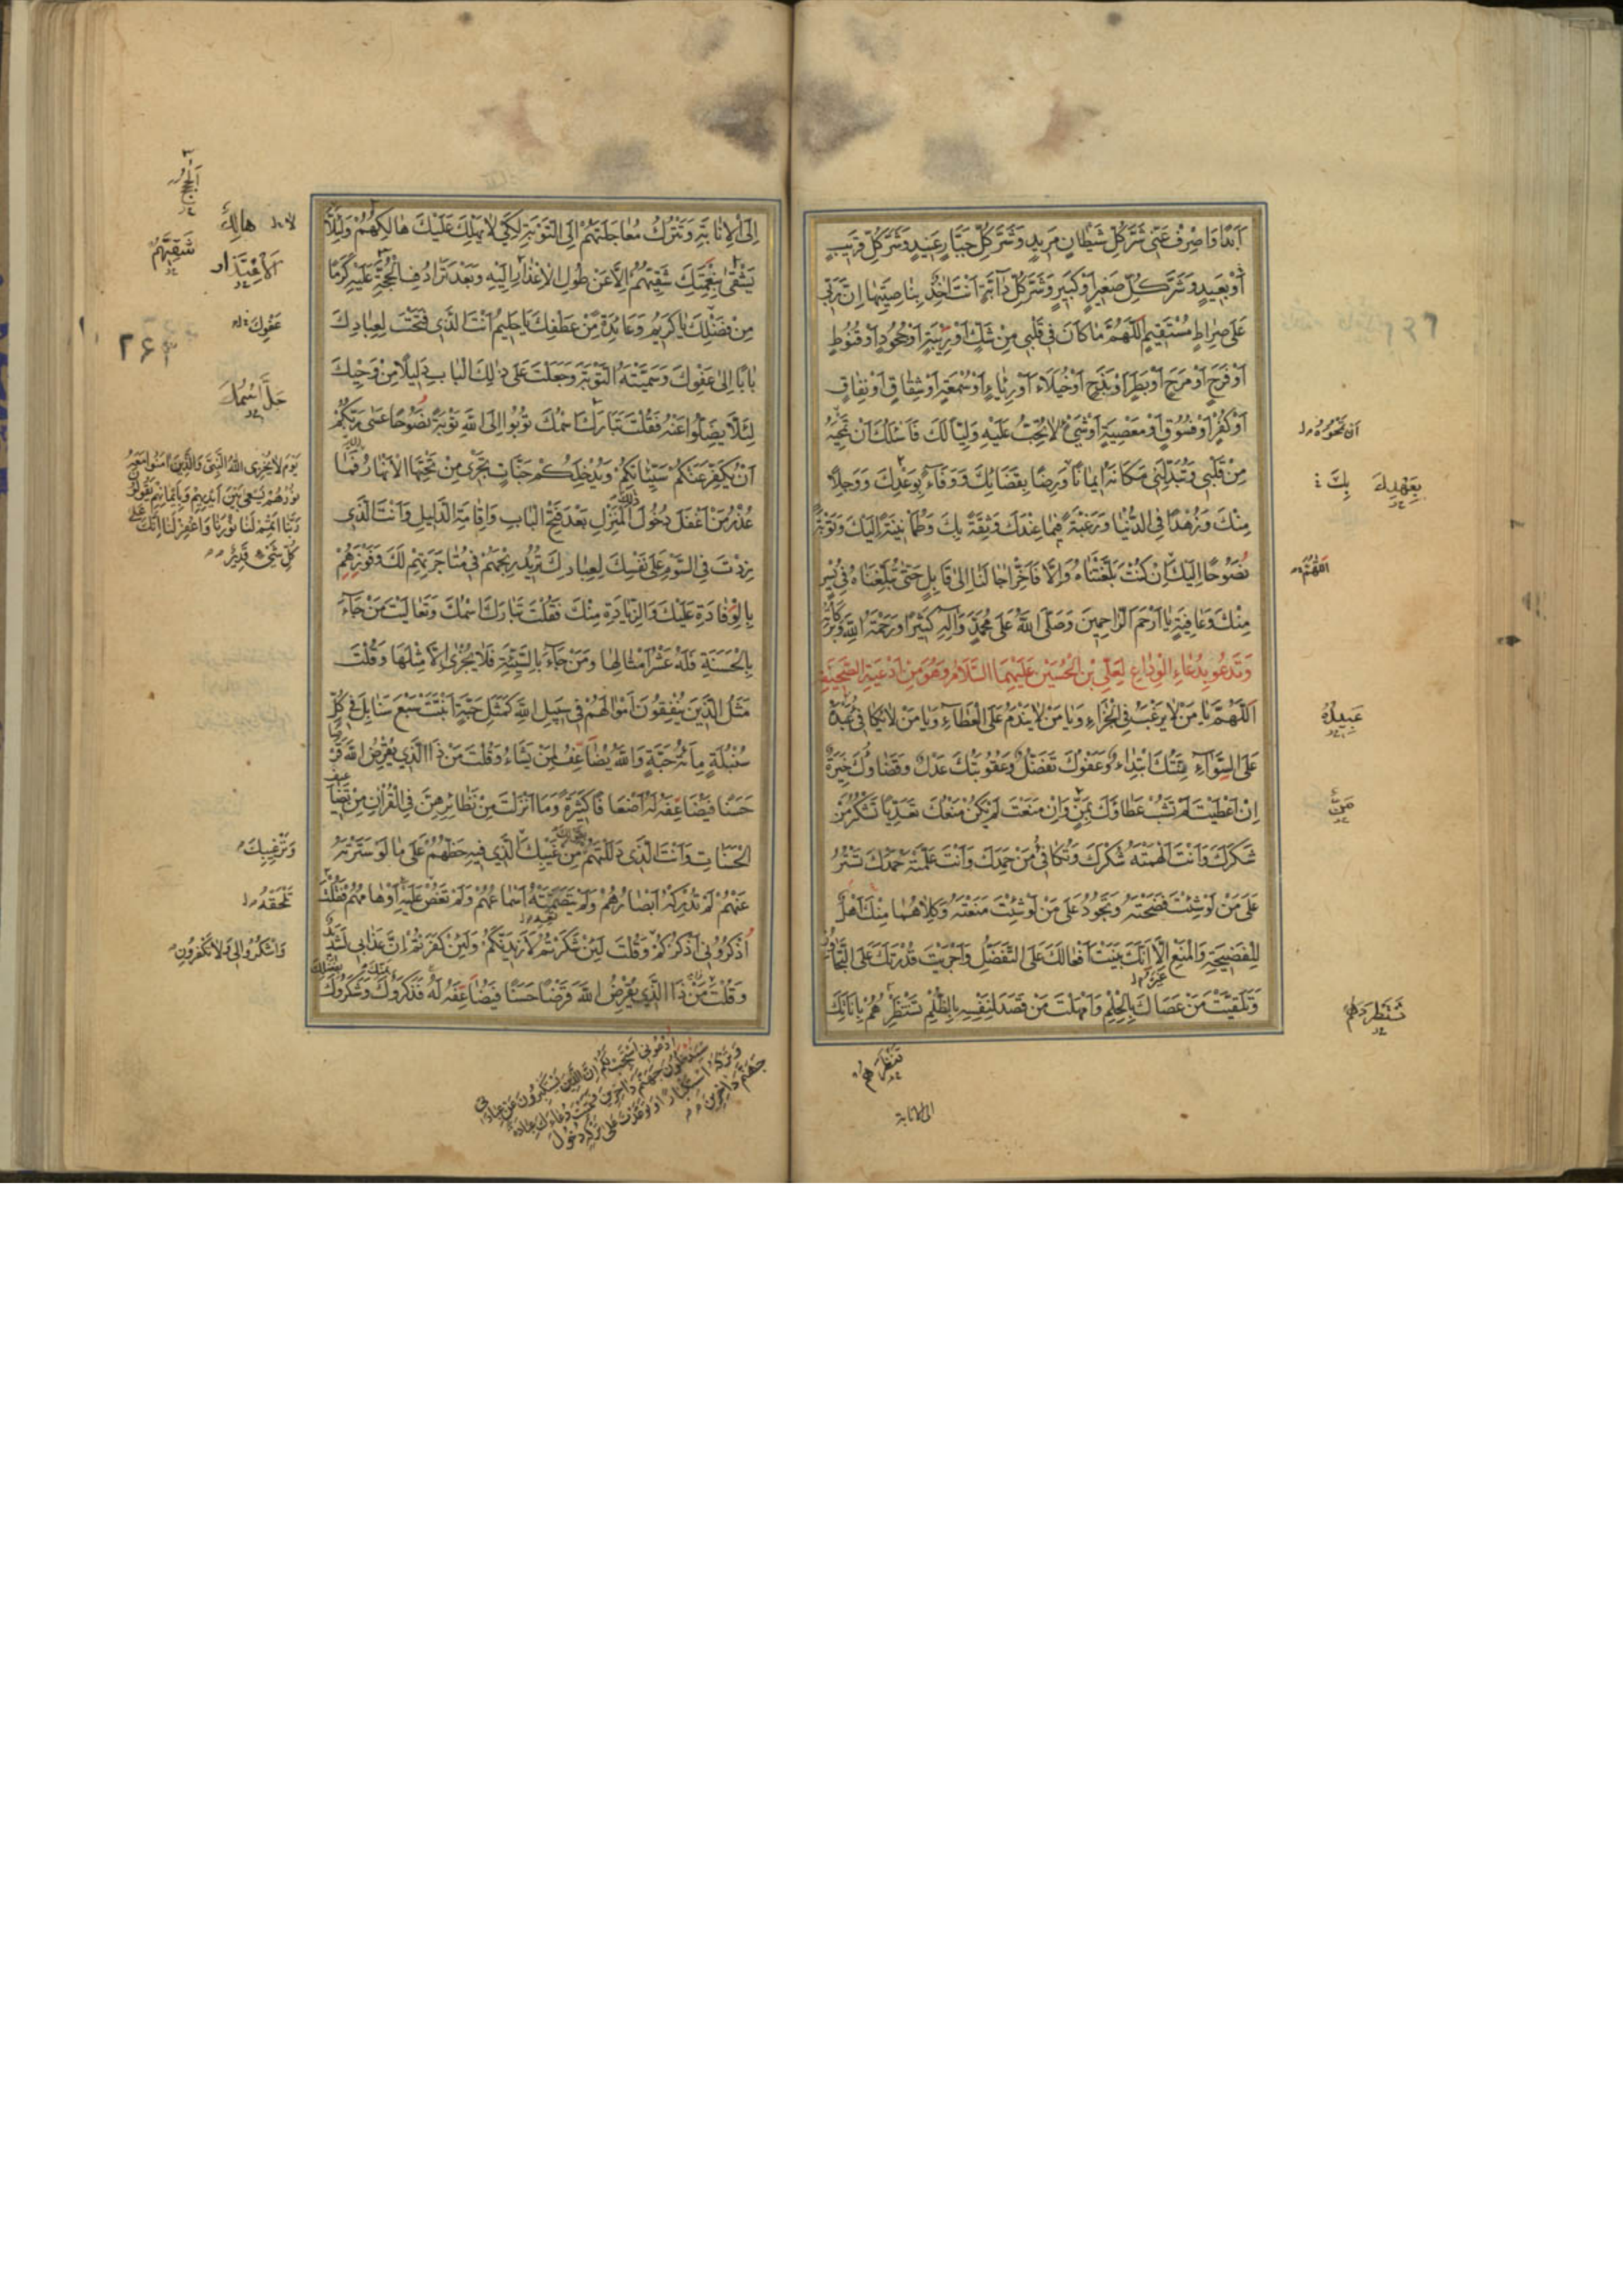 اَبَدًا وَاصْرِفْ عَنّى شَرَّ كُلِّ شَيْطانٍ مَريدٍ وَشَرَّ كُلِّ جَبّارٍ عَنيدٍ وَشَرَّ كُلِّ قَريبٍ
اَوْ بَعيدٍ وَشَرَّ كُلِّ صَغيرٍ اَوْ كَبيرٍ وَشَرَّ كُلِّ دآبَّةٍ اَنْتَ اخِذٌ بِناصِيَتِها اِنَّ رَبّى
عَلى صِراطٍ مُسْتَقيمٍ اَللّهُمَّ ما كانَ فى قَلْبى مِنْ شَكٍّ اَوْ رَيْبَةٍ اَوْ جُحُودٍ اَوْ قُنُوطٍ
اَوْ فَرَحٍ اَوْ مَرَحٍ اَوْ بَطَرٍ اَوْ بَذَخٍ اَوْ خُيَلاءَ اَوْ رِياءٍ اَوْ سُمْعَةٍ اَوْ شِقاقٍ اَوْ نِفاقٍ
اَوْ كُفْرٍ اَوْ فُسُوقٍ اَوْ مَعْصِيَةٍ اَوْ شَىْءٍ لا يُحِبُّ عَلَيْهِ وَلِيّاً لَكَ فَاَسْئَلُكَ اَنْ تَمْحِيَهُ
مِنْ قَلْبى وَتُبَدِّلَنى مَكانَهُ ايماناً وَرِضًا بِقَضائِكَ وَوَفآءً بِوَعْدِكَ وَوَجَلاً
مِنْكَ وَزُهْدًا فِى الدُّنْيا وَرَغْبَةً فيما عِنْدَكَ وَثِقَةً بِكَ وَطُمَأْنينَةً اِلَيْكَ وَتَوْبَةً
نَصُوحًا اِلَيْكَ اِنْ كُنْتَ بَلَّغْتَناهُ وَاِلّا فَاَخِّرْ اجالَنا اِلى قابِلٍ حَتّى تُبَلِّغَناهُ فى يُسْرٍ
مِنْكَ وَعافِيَةٍ يا اَرْحَمَ الرّاحِمينَ وَصَلَّى اللهُ عَلى مُحَمَّدٍ وَآلِهِ كَثيرًا وَرَحْمَةُ اللهِ وَبَرَكاتُهُ
وَتَدْعُو بِدُعاءِ الْوِداعِ لِعَلِىِّ بْنِ الْحُسَيْنِ عَلَيْهِمَا السَّلامُ وَهُوَ مِنْ اَدْعِيَةِ الصَّحيفَةِ
اَللّهُمَّ يا مَنْ لا يَرْغَبُ فِى الْجَزاءِ وَيا مَنْ لا يَنْدَمُ عَلَى الْعَطآءِ وَيا مَنْ لا يُكافِئُ عَبْدَهُ
عَلَى السَّوآءِ مِنَّتُكَ ابْتِداءٌ وَعَفْوُكَ تَفَضُّلٌ وَعُقُوبَتُكَ عَدْلٌ وَقَضاؤُكَ خِيَرَةٌ
اِنْ اَعْطَيْتَ لَمْ تَشُبْ عَطاءَكَ بِمَنٍّ وَاِنْ مَنَعْتَ لَمْ يَكُنْ مَنْعُكَ تَعَدِّياً تَشْكُرُ مَنْ
شَكَرَكَ وَاَنْتَ اَلْهَمْتَهُ شُكْرَكَ وَتُكافِئُ مَنْ حَمِدَكَ وَاَنْتَ عَلَّمْتَهُ حَمْدَكَ تَسْتُرُ
عَلى مَنْ لَوْ شِئْتَ فَضَحْتَهُ وَتَجُودُ عَلى مَنْ لَوْ شِئْتَ مَنَعْتَهُ وَكِلاهُما مِنْكَ اَهْلٌ
لِلْفَضيحَةِ وَالْمَنْعِ اِلّا اَنَّكَ بَنَيْتَ اَفْعالَكَ عَلَى التَّفَضُّلِ وَاَجْرَيْتَ قُدْرَتَكَ عَلَى التَّجاوُزِ
وَتَلَقَّيْتَ مَنْ عَصاكَ بِالْحِلْمِ وَاَمْهَلْتَ مَنْ قَصَدَ لِنَفْسِهِ بِالظُّلْمِ تَسْتَنْظِرُهُمْ بِاَناتِكَ
بِعَهْدِكَ
بِكَ
اللّهُمَّ
عَبيدَهُ
مَنَّ
الى الانابة
اِلَى الْاِنابَةِ وَتَتْرُكُ مُعاجَلَتَهُمْ اِلَى التَّوْبَةِ لِكَىْ لا يَهْلِكَ عَلَيْكَ هالِكُهُمْ وَلِئَلّا
يَشْقى بِنِعْمَتِكَ شَقِيُّهُمْ اِلّا عَنْ طُولِ الْاِعْذارِ اِلَيْهِ وَبَعْدَ تَرادُفِ الْحُجَّةِ عَلَيْهِ كَرَمًا
مِنْ فَضْلِكَ يا كَريمُ وَعائِدَةً مِنْ عَطْفِكَ يا حَليمُ اَنْتَ الَّذى فَتَحْتَ لِعِبادِكَ
بابًا اِلى عَفْوِكَ وَسَمَّيْتَهُ التَّوْبَةَ وَجَعَلْتَ عَلى ذلِكَ الْبابِ دَليلًا مِنْ وَحْيِكَ
لِئَلّا يَضِلُّوا عَنْهُ فَقُلْتَ تَبارَكَ اسْمُكَ تُوبُوا اِلَى اللهِ تَوْبَةً نَصُوحًا عَسى رَبُّكُمْ
اَنْ يُكَفِّرَ عَنْكُمْ سَيِّئاتِكُمْ وَيُدْخِلَكُمْ جَنّاتٍ تَجْرى مِنْ تَحْتِهَا الْاَنْهارُ فَما
عُذْرُ مَنْ اَغْفَلَ دُخُولَ الْمَنْزِلِ بَعْدَ فَتْحِ الْبابِ وَاِقامَةِ الدَّليلِ وَاَنْتَ الَّذى
زِدْتَ فِى السَّوْمِ عَلى نَفْسِكَ لِعِبادِكَ تُريدُ رِبْحَهُمْ فى مُتاجَرَتِهِمْ لَكَ وَفَوْزَهُمْ
بِالْوِفادَةِ عَلَيْكَ وَالزِّيادَةِ مِنْكَ فَقُلْتَ تَبارَكَ اسْمُكَ وَتَعالَيْتَ مَنْ جآءَ
بِالْحَسَنَةِ فَلَهُ عَشْرُ اَمْثالِها وَمَنْ جآءَ بِالسَّيِّئَةِ فَلا يُجْزى اِلّا مِثْلَها وَقُلْتَ
مَثَلُ الَّذينَ يُنْفِقُونَ اَمْوالَهُمْ فى سَبيلِ اللهِ كَمَثَلِ حَبَّةٍ اَنْبَتَتْ سَبْعَ سَنابِلَ فى كُلِّ
سُنْبُلَةٍ مِائَةُ حَبَّةٍ وَاللهُ يُضاعِفُ لِمَنْ يَشاءُ وَقُلْتَ مَنْ ذَا الَّذى يُقْرِضُ اللهَ قَرْضًا
حَسَنًا فَيُضاعِفَهُ لَهُ اَضْعافًا كَثيرَةً وَما اَنْزَلْتَ مِنْ نَظائِرِهِنَّ فِى الْقُرْانِ مِنْ تَضاعيفِ
الْحَسَناتِ وَاَنْتَ الَّذى دَلَلْتَهُمْ مِنْ غَيْبِكَ الَّذى فيهِ حَظُّهُمْ عَلى ما لَوْ سَتَرْتَهُ
عَنْهُمْ لَمْ تُدْرِكْهُ اَبْصارُهُمْ وَلَمْ تَعِهِ اَسْماعُهُمْ وَلَمْ تَغُصْ عَلَيْهِ اَوْهامُهُمْ فَقُلْتَ
اُذْكُرُونى اَذْكُرْكُمْ وَقُلْتَ لَئِنْ شَكَرْتُمْ لَاَزيدَنَّكُمْ وَلَئِنْ كَفَرْتُمْ اِنَّ عَذابى لَشَديدٌ
وَقُلْتَ مَنْ ذَا الَّذى يُقْرِضُ اللهَ قَرْضًا حَسَنًا فَيُضاعِفَهُ لَهُ فَذَكَرُوكَ وَشَكَرُوكَ
هالِكُ
شَقِيَّهُمْ
عَفْوِكَ
يَوْمَ لا يُخْزِى اللهُ النَّبِىَّ وَالَّذينَ امَنُوا مَعَهُ
نُورُهُمْ يَسْعى بَيْنَ اَيْديهِمْ وَبِاَيْمانِهِمْ يَقُولُونَ
رَبَّنا اَتْمِمْ لَنا نُورَنا وَاغْفِرْ لَنا اِنَّكَ عَلى
كُلِّ شَىْءٍ قَديرٌ
وَتَرْغيبِكَ
تَلْحَقْهُ
وَاشْكُرُوا لى وَلا تَكْفُرُونِ
اُدْعُونى اَسْتَجِبْ لَكُمْ اِنَّ الَّذينَ يَسْتَكْبِرُونَ عَنْ عِبادَتى
سَيَدْخُلُونَ جَهَنَّمَ داخِرينَ فَسَمَّيْتَ دُعاءَكَ عِبادَةً
وَتَرْكَهُ اسْتِكْبارًا وَتَوَعَّدْتَ عَلى تَرْكِهِ دُخُولَ
جَهَنَّمَ داخِرينَ